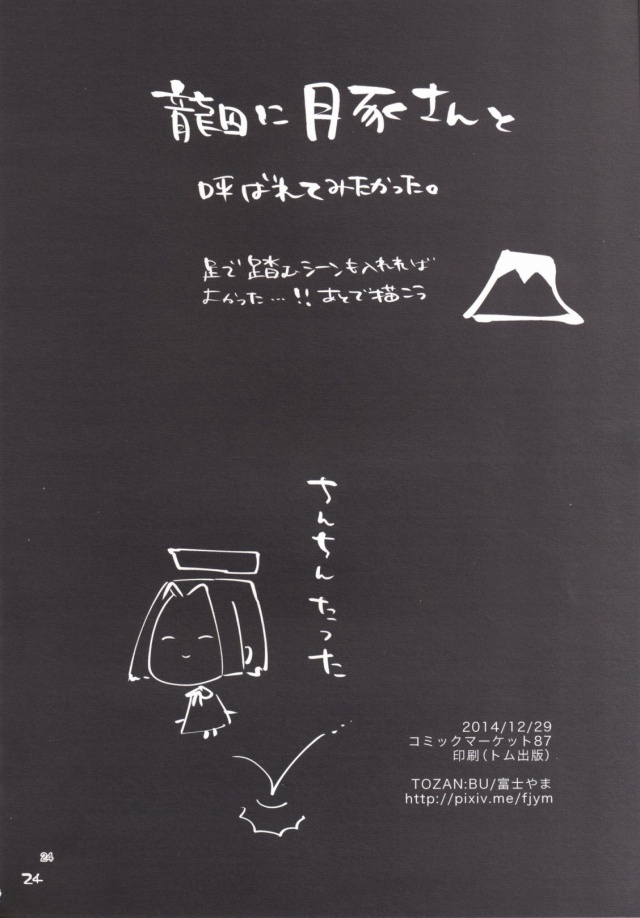 龍田に月豕さんと
呼ばれてみたかった。
足で踏むシーンも入れれば
よかった…!!あとで描こう
ちんちんたった
2014/12/29
コミックマーケット87
印刷(トム出版)
TOZAN:BU/富士やま
http://pixiv.me/fjym
24
24